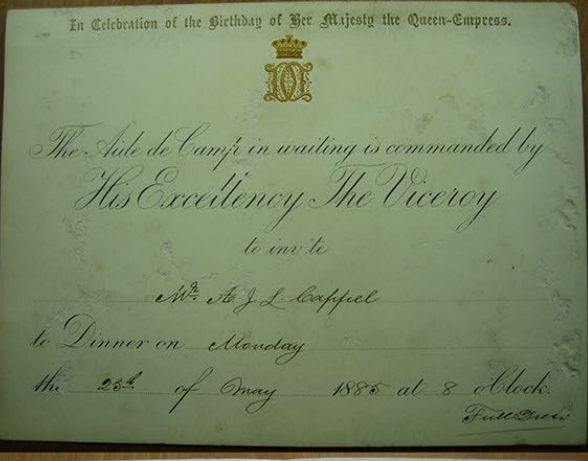 In Celebration of the Birthday of Her Majesty the Queen-Empress.
The Aide de Camp in waiting is commanded by
His Excellency The Viceroy
to invite
Mr. A J L Cappel
to Dinner on Monday
the 25th of May 1885 at 8 o'Clock.
Full Dress